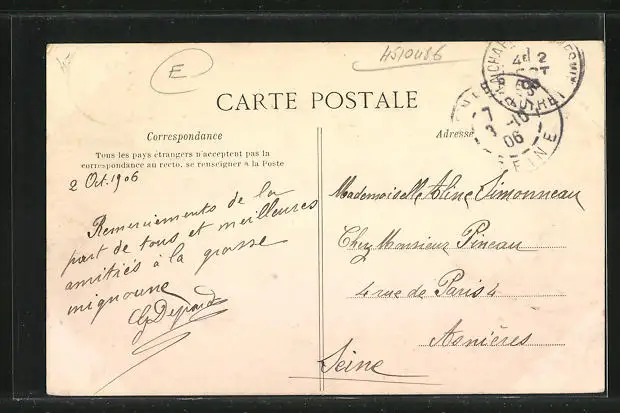 E
4510486
CARTE POSTALE
Correspondance
Adresse
Tous les pays étrangers n'acceptent pas la
correspondance au recto, se renseigner à la Poste
2 Oct. 1906
Remerciements de la
part de tous et meilleures
amitiés à la grosse
mignonne
Mademoiselle Aline Simonneau
Chez Monsieur Pineau
4 rue de Paris 4
Asnières
Seine
7
3 -10
06
SEINE